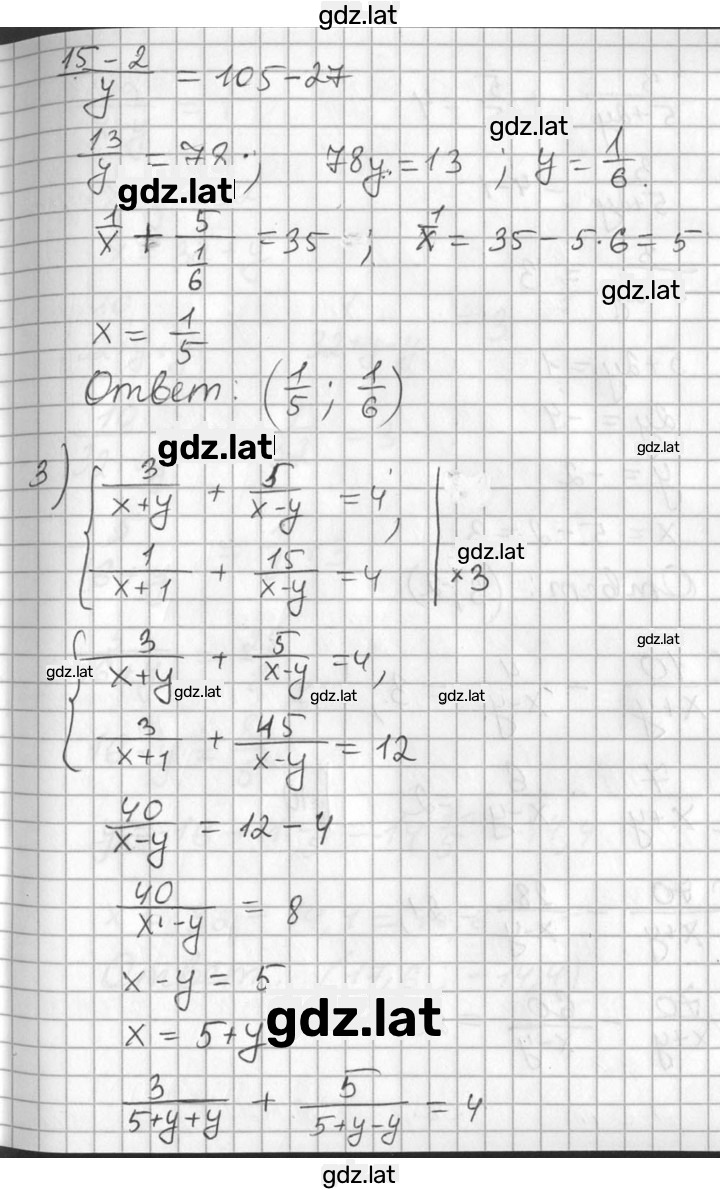 gdz.lat
(15-2)/y = 105-27
gdz.lat
13/y = 78; 78y = 13; y = 1/6.
gdz.lat
1/x + 5/(1/6) = 35; 1/x = 35-5·6 = 5
gdz.lat
x = 1/5
Ответ: (1/5; 1/6)
gdz.lat
gdz.lat
3) { 3/(x+y) + 5/(x-y) = 4,
gdz.lat
1/(x+1) + 15/(x-y) = 4 | ×3
gdz.lat
{ 3/(x+y) + 5/(x-y) = 4,
gdz.lat gdz.lat gdz.lat gdz.lat
3/(x+1) + 45/(x-y) = 12
40/(x-y) = 12-4
40/(x-y) = 8
x-y = 5
x = 5+y
gdz.lat
3/(5+y+y) + 5/(5+y-y) = 4
gdz.lat